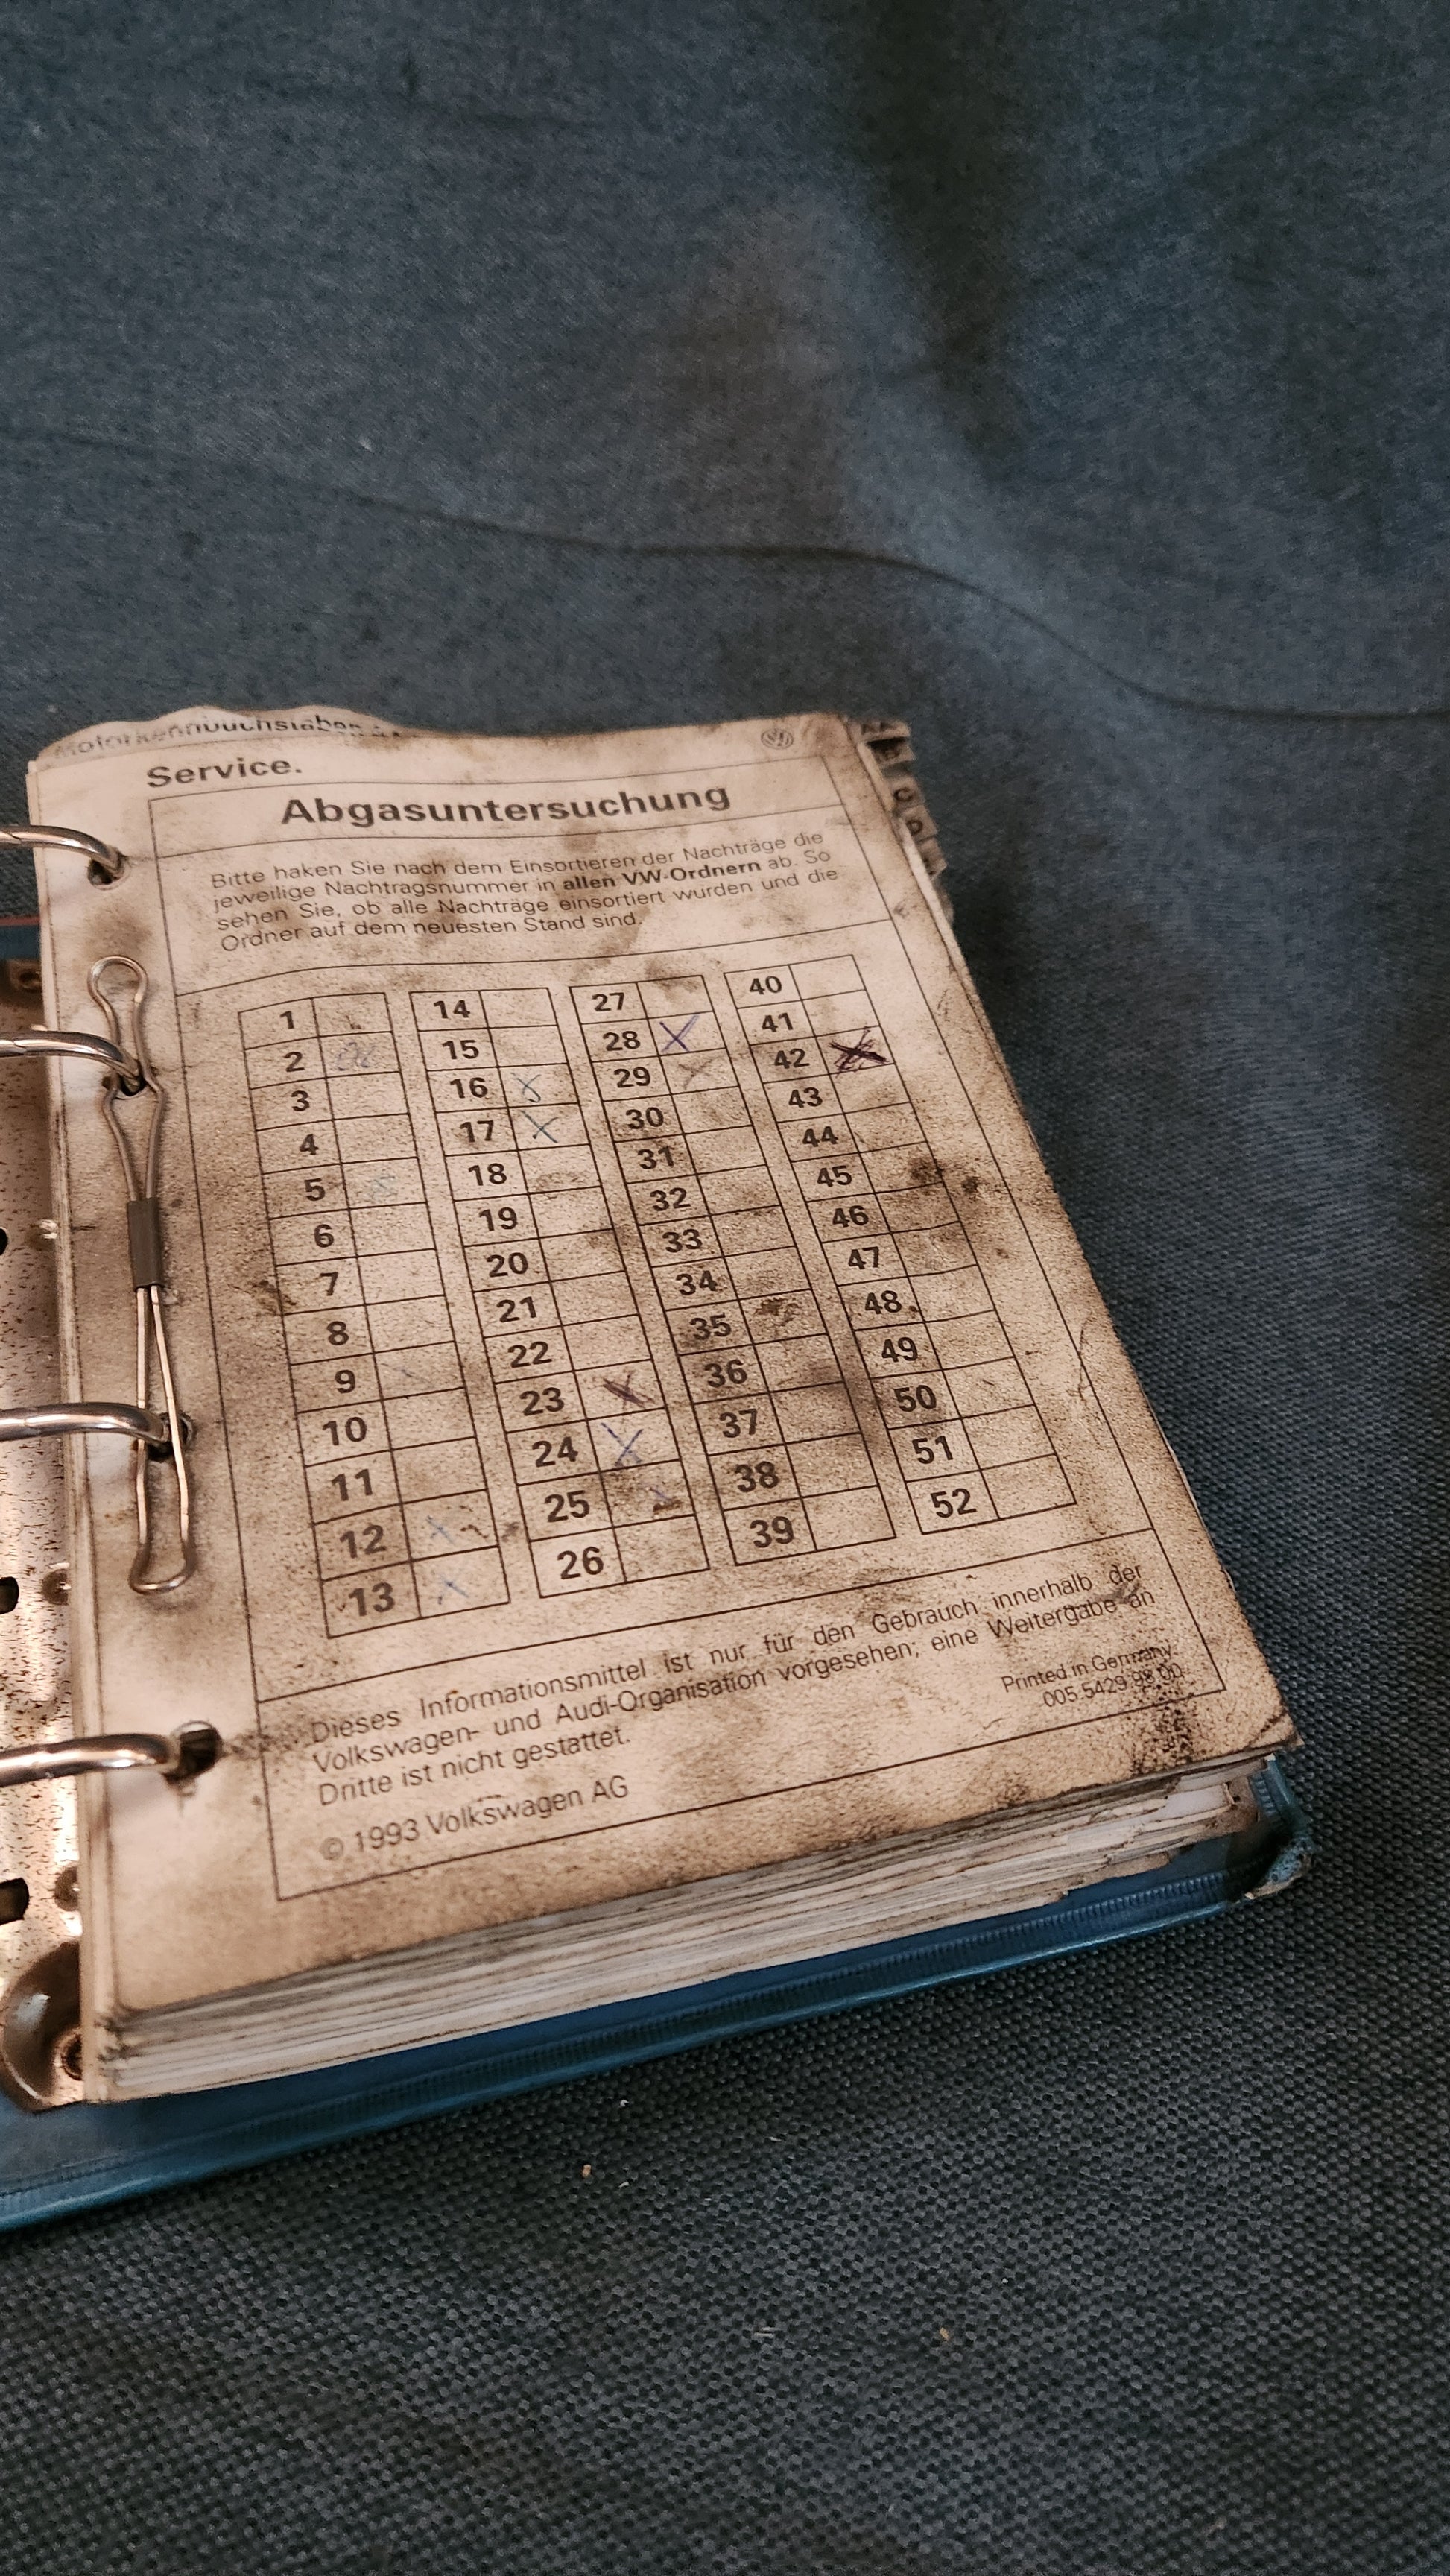 Service.
Abgasuntersuchung
Bitte haken Sie nach dem Einsortieren der Nachträge die
jeweilige Nachtragsnummer in allen VW-Ordnern ab. So
sehen Sie, ob alle Nachträge einsortiert wurden und die
Ordner auf dem neuesten Stand sind.
1
2
3
4
5
6
7
8
9
10
11
12 X
13
14
15
16 X
17 X
18
19
20
21
22
23 X
24 X
25
26
27
28 X
29 X
30
31
32
33
34
35
36
37
38
39
40
41
42 X
43
44
45
46
47
48
49
50
51
52
Dieses Informationsmittel ist nur für den Gebrauch innerhalb der
Volkswagen- und Audi-Organisation vorgesehen; eine Weitergabe an
Dritte ist nicht gestattet.
© 1993 Volkswagen AG
Printed in Germany
C
D